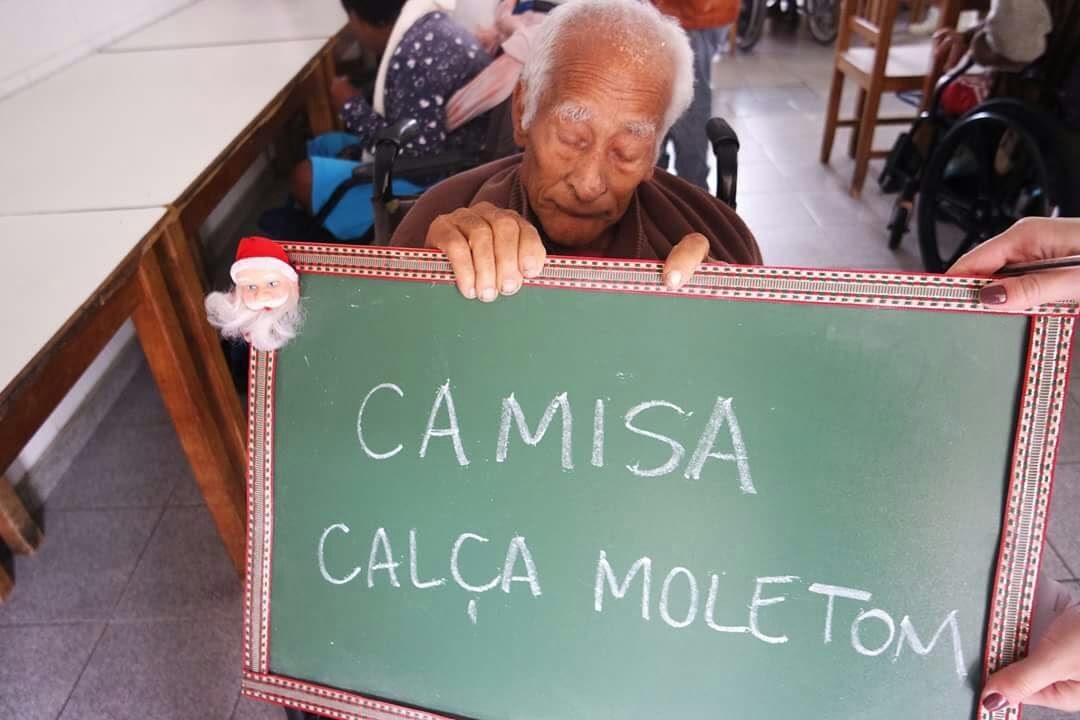 CAMISA
CALÇA MOLETOM